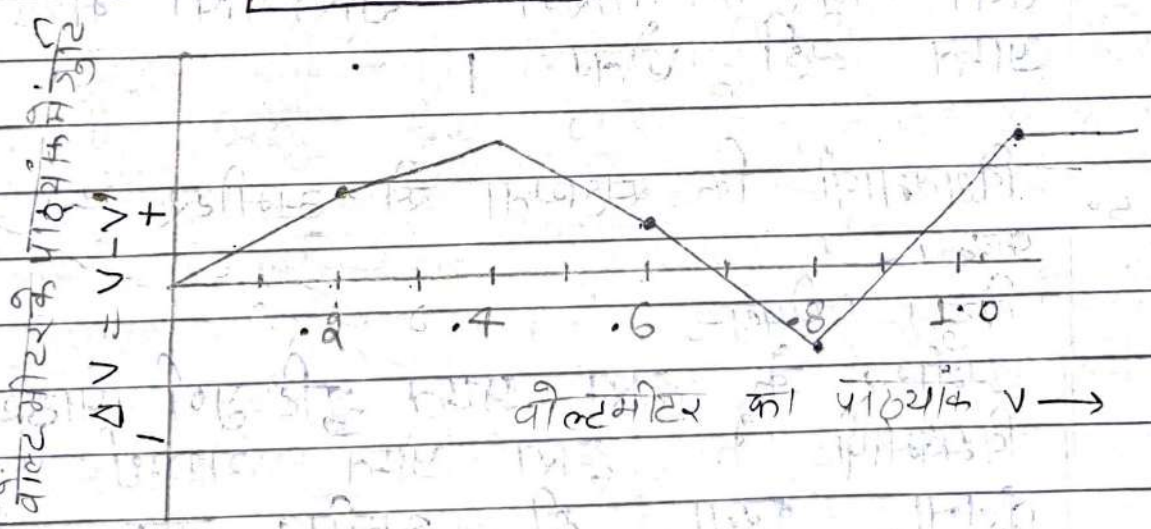 वोल्टमीटर के पाठ्यांक में त्रुटि
Δ V = V - V'
+
-
.2 .4 .6 .8 1.0
वोल्टमीटर का पाठ्यांक V →